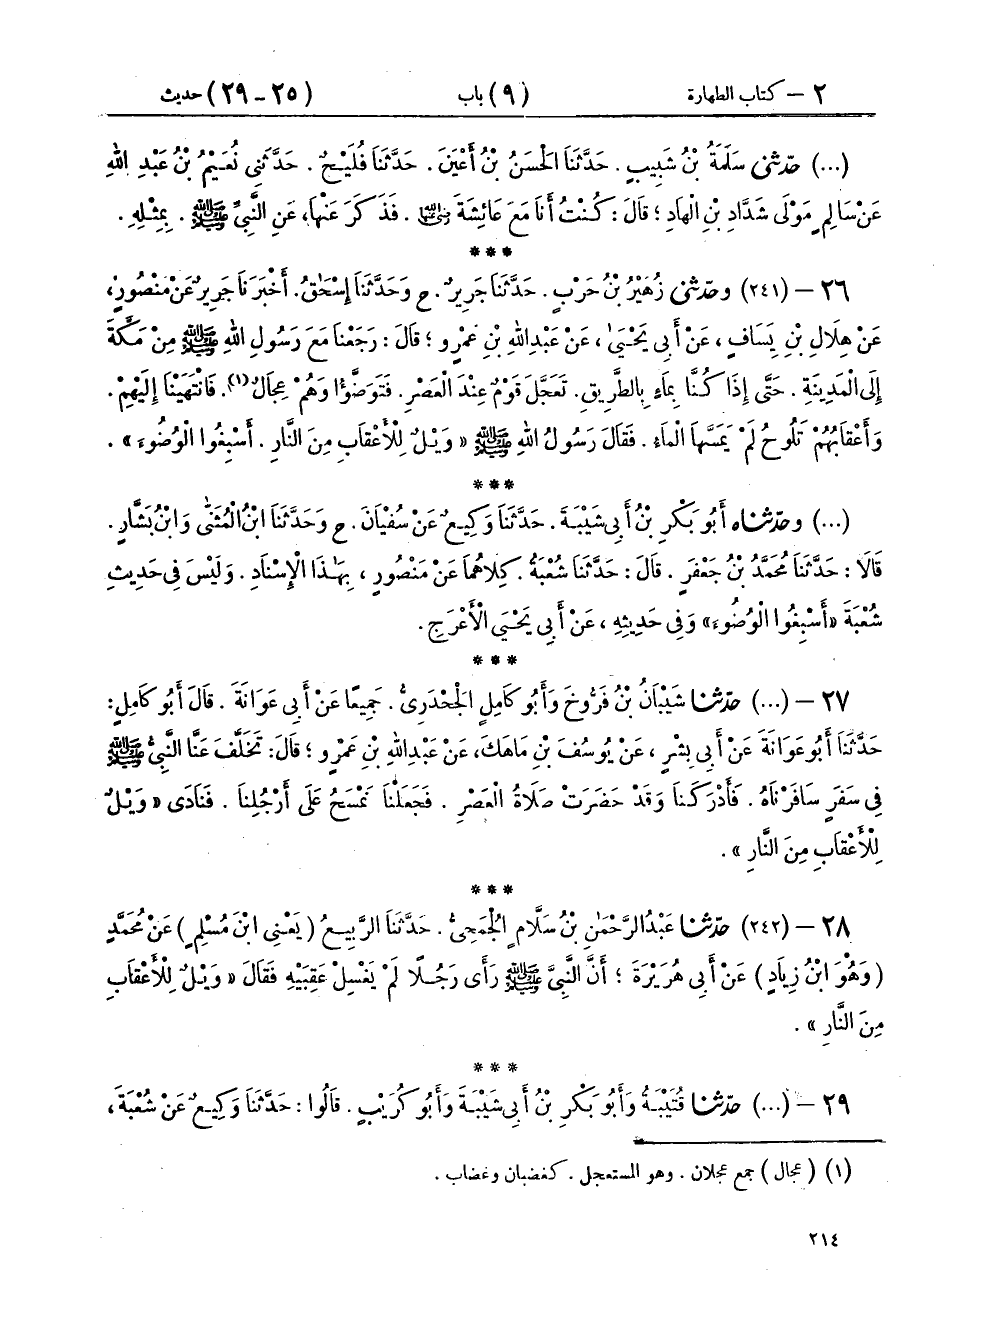 ٢ – كتاب الطهارة (٩) باب (٢٥ – ٢٩) حديث
(...) حَدَّثَنِي سَلَمَةُ بْنُ شَبِيبٍ. حَدَّثَنَا الْحَسَنُ بْنُ أَعْيَنَ. حَدَّثَنَا فُلَيْحٌ. حَدَّثَنِي نُعَيْمُ بْنُ عَبْدِ اللهِ
عَنْ سَالِمٍ مَوْلَى شَدَّادِ بْنِ الْهَادِ؛ قَالَ: كُنْتُ أَنَا مَعَ عَائِشَةَ رضي الله عنها. فَذَكَرَ عَنْهَا، عَنِ النَّبِيِّ ﷺ. بِمِثْلِهِ.
***
٢٦ – (٢٤١) وحَدَّثَنِي زُهَيْرُ بْنُ حَرْبٍ. حَدَّثَنَا جَرِيرٌ. ح وَحَدَّثَنَا إِسْحَٰقُ. أَخْبَرَنَا جَرِيرٌ عَنْ مَنْصُورٍ،
عَنْ هِلَالِ بْنِ يَسَافٍ، عَنْ أَبِي يَحْيَىٰ، عَنْ عَبْدِ اللهِ بْنِ عَمْرٍو؛ قَالَ: رَجَعْنَا مَعَ رَسُولِ اللهِ ﷺ مِنْ مَكَّةَ
إِلَى الْمَدِينَةِ. حَتَّى إِذَا كُنَّا بِمَاءٍ بِالطَّرِيقِ. تَعَجَّلَ قَوْمٌ عِنْدَ الْعَصْرِ. فَتَوَضَّؤُا وَهُمْ عِجَالٌ(١). فَانْتَهَيْنَا إِلَيْهِمْ.
وَأَعْقَابُهُمْ تَلُوحُ لَمْ يَمَسَّهَا الْمَاءُ. فَقَالَ رَسُولُ اللهِ ﷺ «وَيْلٌ لِلْأَعْقَابِ مِنَ النَّارِ. أَسْبِغُوا الْوُضُوءَ».
***
(...) وحَدَّثَنَاه أَبُو بَكْرِ بْنُ أَبِي شَيْبَةَ. حَدَّثَنَا وَكِيعٌ عَنْ سُفْيَانَ. ح وَحَدَّثَنَا ابْنُ الْمُثَنَّى وَابْنُ بَشَّارٍ.
قَالَا: حَدَّثَنَا مُحَمَّدُ بْنُ جَعْفَرٍ. قَالَ: حَدَّثَنَا شُعْبَةُ. كِلَاهُمَا عَنْ مَنْصُورٍ، بِهَٰذَا الْإِسْنَادِ. وَلَيْسَ فِي حَدِيثِ
شُعْبَةَ «أَسْبِغُوا الْوُضُوءَ» وَفِي حَدِيثِهِ، عَنْ أَبِي يَحْيَى الْأَعْرَجِ.
***
٢٧ – (...) حَدَّثَنَا شَيْبَانُ بْنُ فَرُّوخَ وَأَبُو كَامِلٍ الْجَحْدَرِيُّ. جَمِيعًا عَنْ أَبِي عَوَانَةَ. قَالَ أَبُو كَامِلٍ:
حَدَّثَنَا أَبُو عَوَانَةَ عَنْ أَبِي بِشْرٍ، عَنْ يُوسُفَ بْنِ مَاهَكَ، عَنْ عَبْدِ اللهِ بْنِ عَمْرٍو؛ قَالَ: تَخَلَّفَ عَنَّا النَّبِيُّ ﷺ
فِي سَفَرٍ سَافَرْنَاهُ. فَأَدْرَكَنَا وَقَدْ حَضَرَتْ صَلَاةُ الْعَصْرِ. فَجَعَلْنَا نَمْسَحُ عَلَى أَرْجُلِنَا. فَنَادَى «وَيْلٌ
لِلْأَعْقَابِ مِنَ النَّارِ».
***
٢٨ – (٢٤٢) حَدَّثَنَا عَبْدُ الرَّحْمَٰنِ بْنُ سَلَّامٍ الْجُمَحِيُّ. حَدَّثَنَا الرَّبِيعُ (يَعْنِي ابْنَ مُسْلِمٍ) عَنْ مُحَمَّدٍ
(وَهُوَ ابْنُ زِيَادٍ) عَنْ أَبِي هُرَيْرَةَ؛ أَنَّ النَّبِيَّ ﷺ رَأَى رَجُلًا لَمْ يَغْسِلْ عَقِبَيْهِ فَقَالَ «وَيْلٌ لِلْأَعْقَابِ
مِنَ النَّارِ».
***
٢٩ – (...) حَدَّثَنَا قُتَيْبَةُ وَأَبُو بَكْرِ بْنُ أَبِي شَيْبَةَ وَأَبُو كُرَيْبٍ. قَالُوا: حَدَّثَنَا وَكِيعٌ عَنْ شُعْبَةَ،
(١) (عجال) جمع عجلان. وهو المستعجل. كغضبان وغضاب.
٢١٤